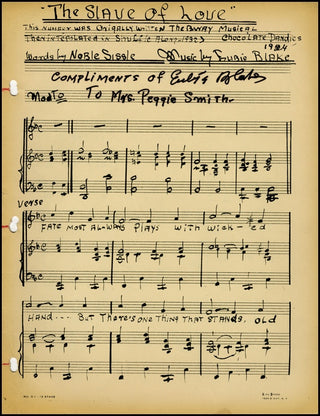 "The Slave of Love"
This number was Origally written The B.Way Musical
Then interpilated in Shuffle Along 1923 Chocolate Dandies
1924
Words by Noble Sissle Music by Eubie Blake
Compliments of Eubie Blake
Mod To To Mrs. Peggie Smith.
Verse
FATE MOST AL-WAYS PLAYS WITH WICK-ED
HAND--- BUT THERE'S ONE THING THAT STANDS, OLD